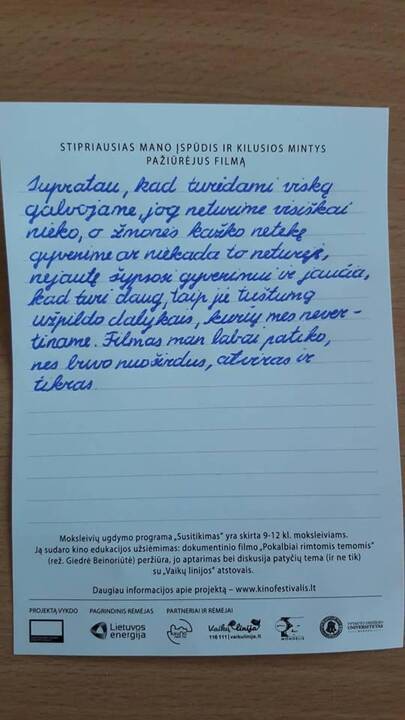 STIPRIAUSIAS MANO ĮSPŪDIS IR KILUSIOS MINTYS
PAŽIŪRĖJUS FILMĄ
Supratau, kad turėdami viską
galvojame, jog neturime visiškai
nieko, o žmonės kažko netekę
gyvenime ar niekada to neturėję,
nejautę šypsosi gyvenimui ir jaučia,
kad turi daug, taip jie tuštumą
užpildo dalykais, kurių mes never-
tiname. Filmas man labai patiko,
nes buvo nuoširdus, atviras ir
tikras
Moksleivių ugdymo programa „Susitikimas" yra skirta 9-12 kl. moksleiviams.
Ją sudaro kino edukacijos užsiėmimas: dokumentinio filmo „Pokalbiai rimtomis temomis"
(rež. Giedrė Beinoriūtė) peržiūra, jo aptarimas bei diskusija patyčių tema (ir ne tik)
su „Vaikų linijos" atstovais.
Daugiau informacijos apie projektą – www.kinofestivalis.lt
PROJEKTĄ VYKDO PAGRINDINIS RĖMĖJAS PARTNERIAI IR RĖMĖJAI
Lietuvos
energija
Vaikų linija
116 111 | vaikulinija.lt
UNIVERSITETAS